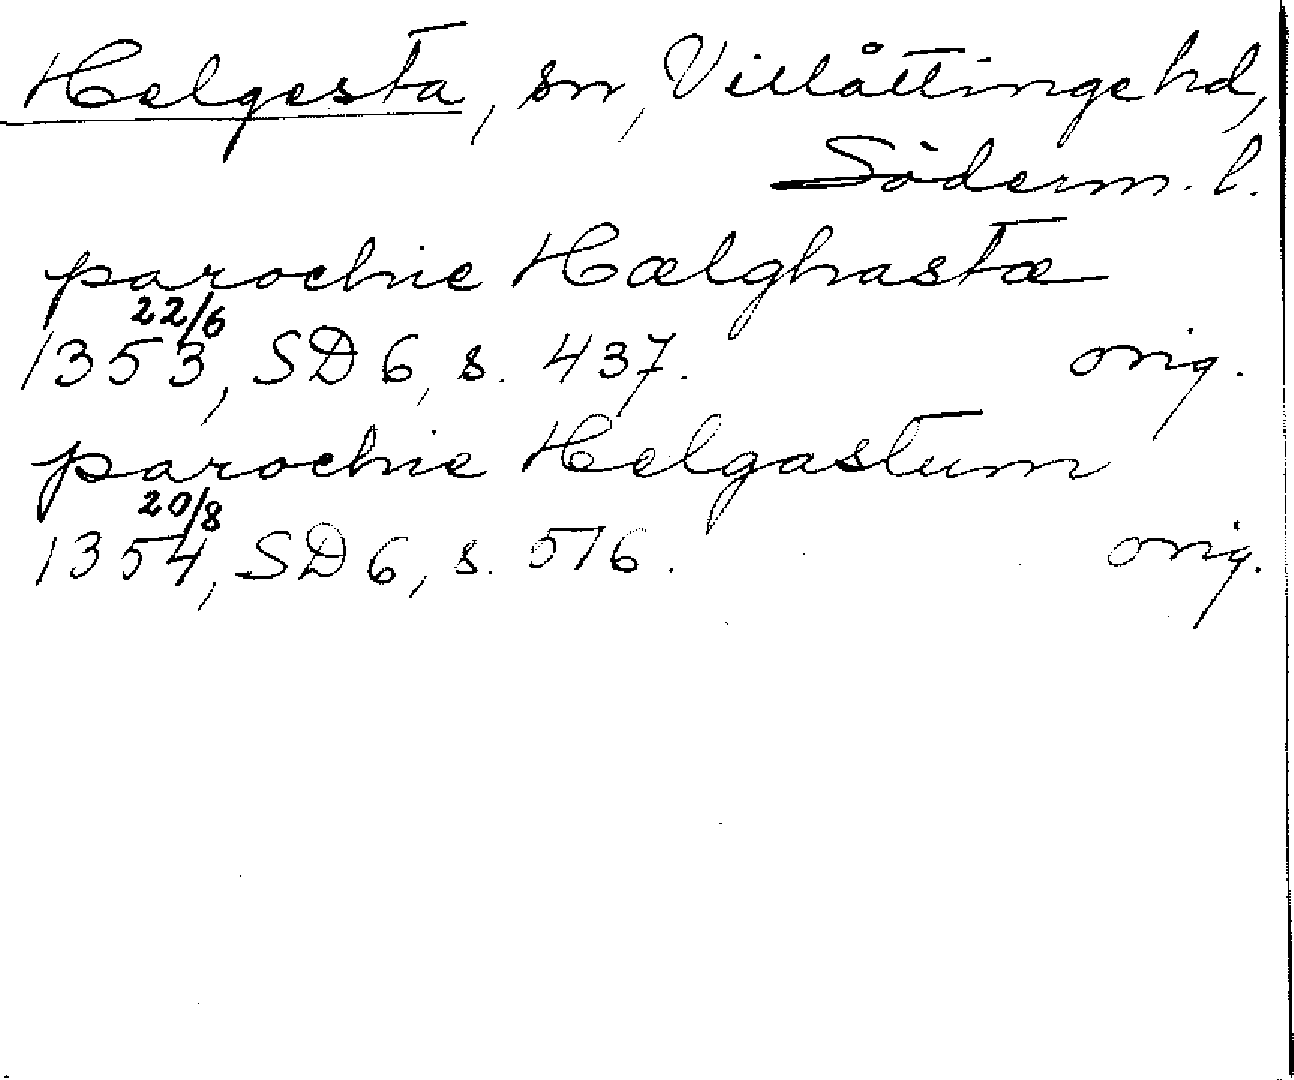 Helgesta, sn, Villåttinge hd,
Söderm. l.
parochie Hælghastæ
22/6
1353, SD 6, s. 437. orig.
parochie Helgastum
20/8
1354, SD 6, s. 516. orig.